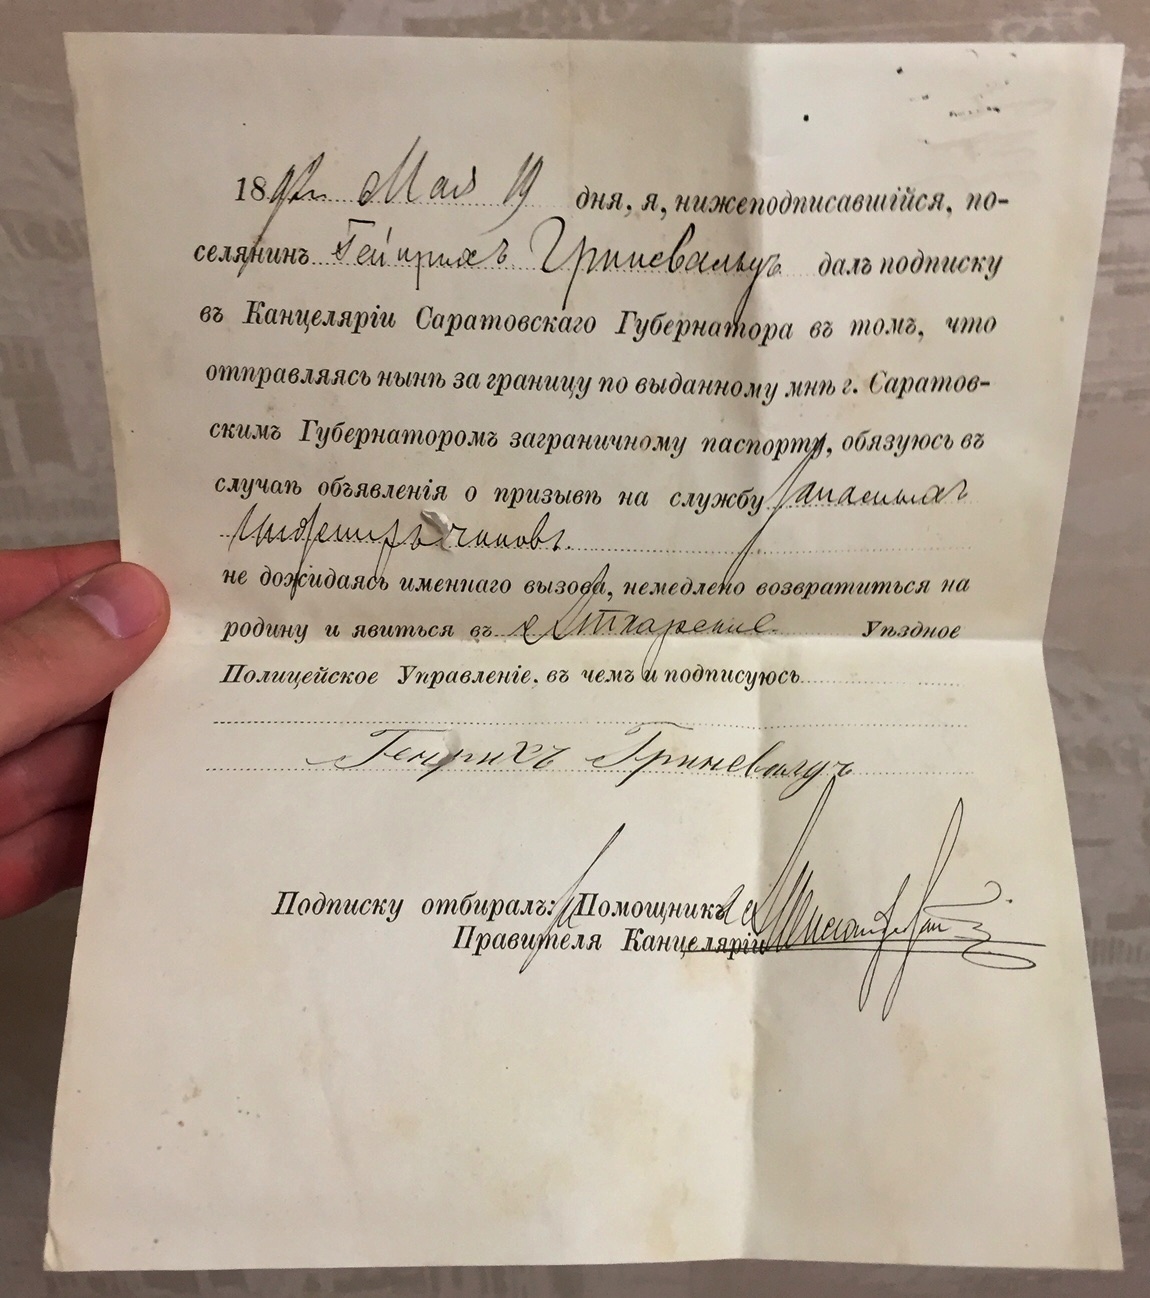 1892 г. Мая 19 дня, я, нижеподписавшійся, по-
селянинъ Гейнрихъ Гриневальдъ далъ подписку
въ Канцеляріи Саратовскаго Губернатора въ томъ, что
отправляясь нынѣ за границу по выданному мнѣ г. Саратов-
скимъ Губернаторомъ заграничному паспорту, обязуюсь въ
случаѣ объявленія о призывѣ на службу запасныхъ
нижнихъ чиновъ
не дожидаясь именнаго вызова, немедлено возвратиться на
родину и явиться въ Аткарское Уѣздное
Полицейское Управленіе. въ чемъ и подписуюсь
Генрихъ Гриневалдъ
Подписку отбиралъ: Помощникъ
Правителя Канцеляріи